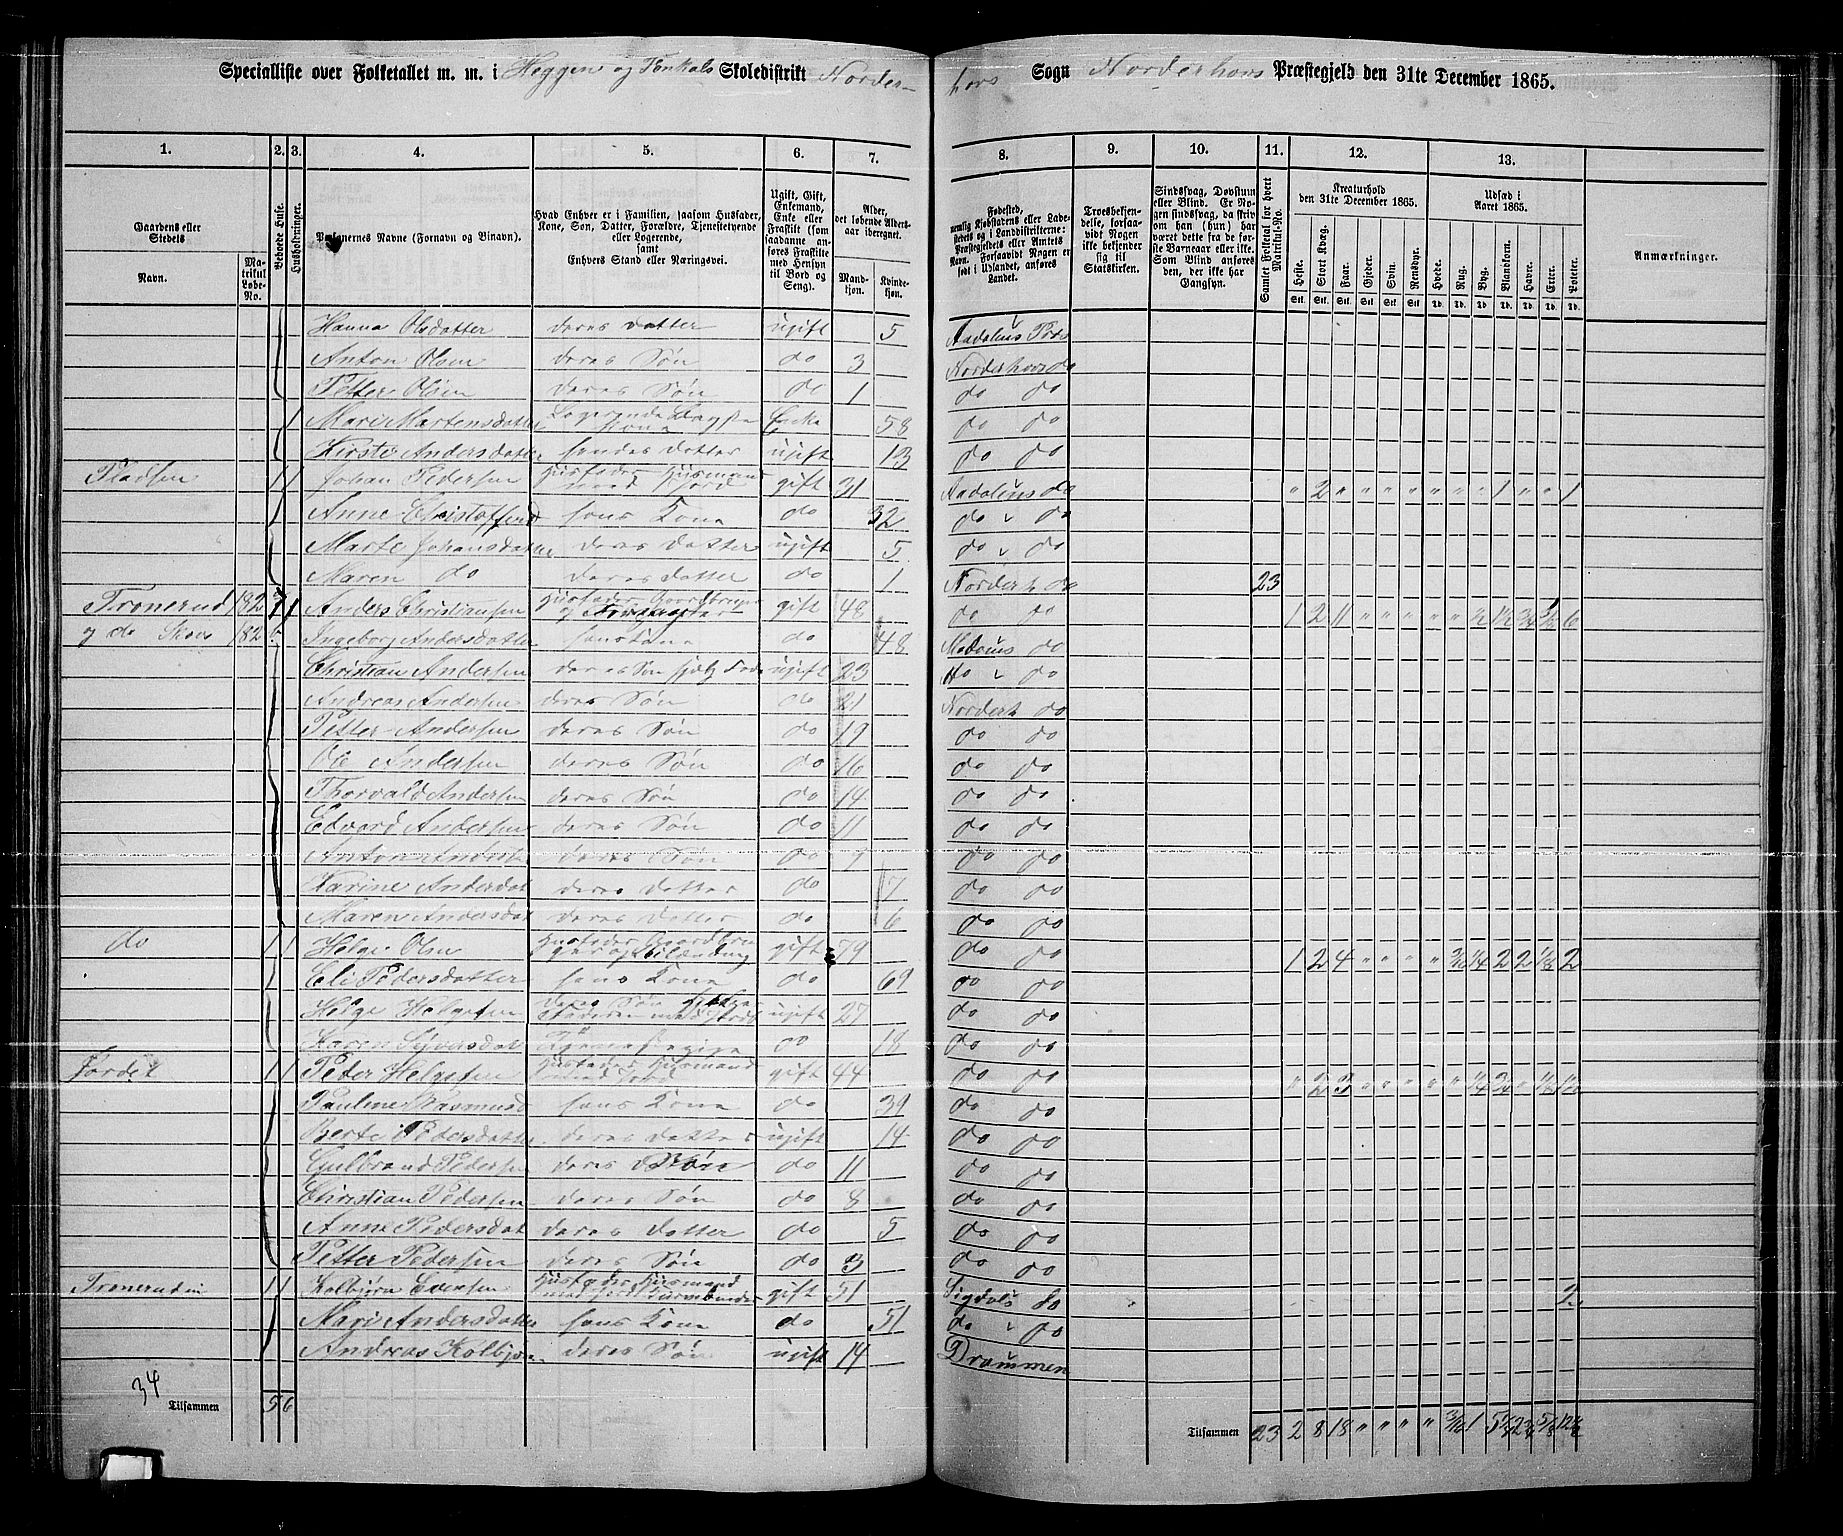 Specialliste over Folketallet m. m. i Heggen og Skoledistrikt Norder- hovs Sogn Norderhovs Præstegjeld den 31te December 1865.
1. 2. 3. 4. 5. 6. 7. 8. 9. 10. 11. 12. 13.
Gaardens eller Stedets
Navn. Matrikul Løbe-No.
Beboede Huse.
Husholdninger.
Personernes Navne (Fornavn og Binavn).
Hvad Enhver er i Familien, saasom Husfader, Kone, Søn, Datter, Forældre, Tjenestetyende eller Logerende, samt Enhvers Stand eller Næringsvei.
Ugift, Gift, Enkemand, Enke eller Fraskilt (som saadanne anføres Fraskilte med Hensyn til Bord og Seng).
Alder, det løbende Alders-aar iberegnet.
Mand-kjøn. Kvinde-kjøn.
Fødested, nemlig Kjøbstadens eller Ladestedets eller i Landdistrikterne: Præstegjeldets eller Amtets Navn. Forsaavidt Nogen er født i Udlandet, anføres Landet.
Troesbekjendelse, forsaavidt Nogen ikke bekjender sig til Statskirken.
Sindssvag, Døvstum eller Blind. Er Nogen sindssvag, da skriv om han (hun) har været dette fra de første Barneaar eller ikke. Som Blind anføres den, der ikke har Gangsyn.
Samlet Folketal for hvert Matrikul-No.
Kreaturhold den 31te December 1865.
Heste. Stort Kvæg. Faar. Gjeder. Svin. Rensdyr.
Udsæd i Aaret 1865.
Hvede. Rug. Byg. Blandkorn. Havre. Erter. Poteter.
Anmærkninger.
Hanna Olsdatter deres datter ugift 5 Aadalens
Anton Olsen deres Søn do 3 Norderhovs do
Petter Olsen deres Søn do 1 do do
1 Mari Martensdatter Logerende Enke 58 do do
Kirsti Andersdatter hendes datter ugift 13 do do
Pladsen 1 1 Johan Pedersen Husfader Husmand med Jord gift 31 Aadalens do " 2 " " " " " " " 1 " " 1
Anne hans Kone do 32 do do
Marte Johansdatter deres datter ugift 5 do do
Maren do deres datter do 1 Norderh do 23
Tronerud 182 1 Anders Christiansen Husfader gift 48 do do 1 2 11 " " " " " ½ 1½ 3/4 6
og do 182 Ingeborg Andersdatter hans Kone do 48 Modums do
Christian Andersen deres Søn ugift 23 do do
Andreas Andersen deres Søn do 21 Norderh do
Petter Andersen deres Søn do 19 do do
Ole Andersen deres Søn do 16 do do
Thorvald Andersen deres Søn do 14 do do
Edvard Andersen deres Søn do 11 do do
Anton deres Søn do do do
Karine Andersdat deres datter do do do
Maren Andersdat deres datter do 6 do do
do 1 1 Helge Olsen Husfader gift 79 do do 1 2 4 " " " " ¼ 2 2 1/8 2
Eli Pedersdatter hans Kone do 69 do do
Helge Helgesen deres Søn ugift 27 do do
Karen Syversdat do 18 do do
Jordet 1 1 Peder Helgesen Husfader Husmand med Jord gift 44 do do " 2 3 " " " " " ¼ 3/4 " 1/8 1½
Pauline hans Kone do 39 do do
Berte Pedersdatter deres datter ugift 14 do do
Gulbrand Pedersen deres Søn do 11 do do
Christian Pedersen deres Søn do 8 do do
Anne Pedersdat deres datter do 5 do do
Petter Pedersen deres Søn do 3 do do
1 1 Kolbjørn Evensen Husfader Husmand med Jord gift 51 Sigdals do 2
Mari Andersdatter hans Kone do 51 do do
Andreas Kolbjørn deres Søn ugift 14 Drammen
34
Tilsammen 5 6 Tilsammen 23 2 8 18 " " " "